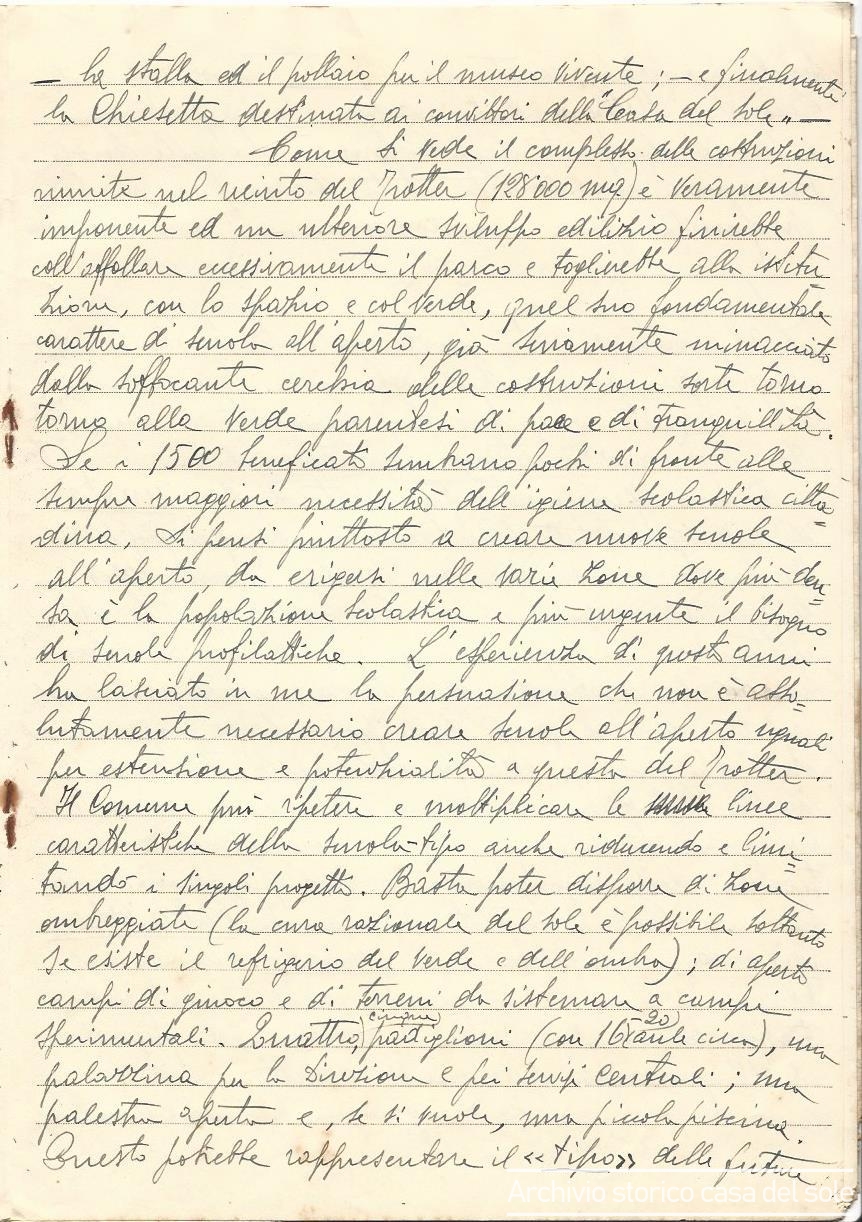 — la stalla ed il pollaio per il museo vivente; — e finalmente
la Chiesetta destinata ai convittori della "Casa del sole". —
Come si vede il complesso delle costruzioni
riunite nel recinto del Trotter (128'000 mq) è veramente
imponente ed un ulteriore sviluppo edilizio finirebbe
coll'affollare eccessivamente il parco e toglierebbe alla istitu
zione, con lo spazio e col verde, quel suo fondamentale
carattere di scuola all'aperto, già seriamente minacciato
dalla soffocante cerchia delle costruzioni sorte torno
torno alla verde parentesi di pace e di tranquillità.
Se i 1500 beneficati sembrano pochi di fronte alle
sempre maggiori necessità dell'igiene scolastica citta=
dina, si pensi piuttosto a creare nuove scuole
all'aperto, da erigersi nelle varie zone dove più den=
sa è la popolazione scolastica e più urgente il bisogno
di scuole profilattiche. L'esperienza di questi anni
ha lasciato in me la persuasione che non è asso=
lutamente necessario creare scuole all'aperto uguali
per estensione e potenzialità a questa del Trotter.
Il Comune può ripetere e moltiplicare le linee
caratteristiche della scuola-tipo anche riducendo e limi=
tando i singoli progetti. Basta poter disporre di zone
ombreggiate (la cura razionale del sole è possibile soltanto
se esiste il refrigerio del verde e dell'ombra); di aperti
campi di giuoco e di terreni da sistemare a campi
sperimentali. Quattro (cinque) padiglioni (con 16 (20) aule circa), una
palazzina per la Direzione e pei servizi centrali; una
palestra aperta e, se si vuole, una piccola piscina.
Questo potrebbe rappresentare il «tipo» delle future
Archivio storico casa del sole